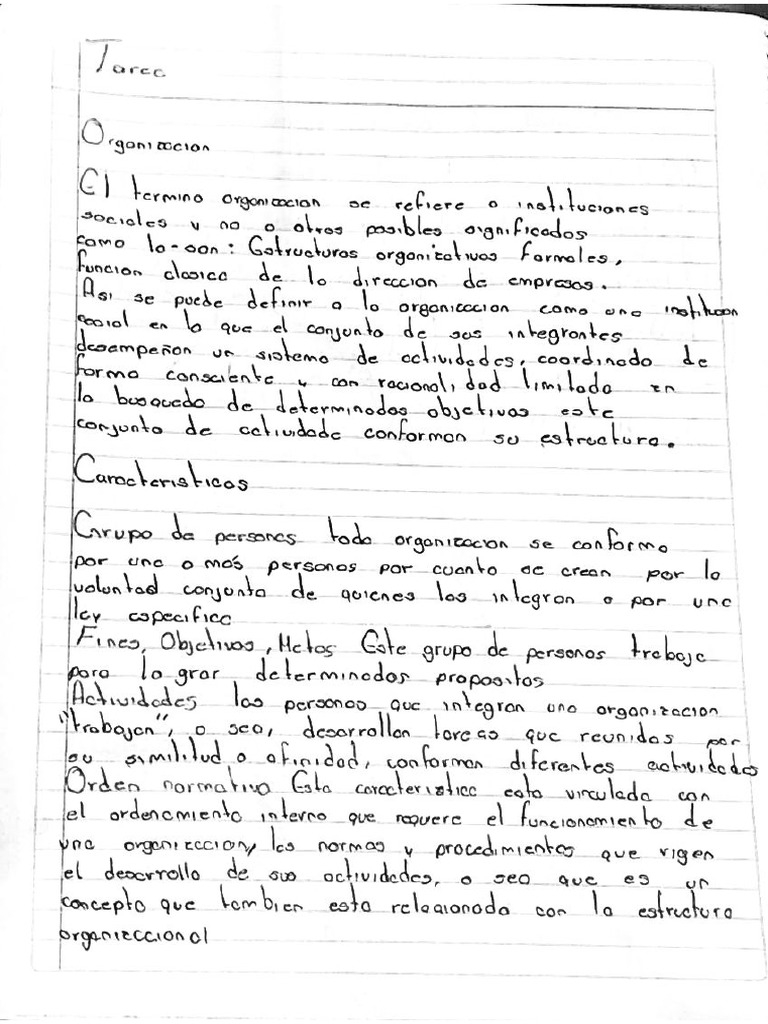 Tarea
Organizacion
El termino organizacion se refiere a instituciones
sociales y no a otros posibles significados
como lo-son: Estructuras organizativas formales,
funcion clasica de la direccion de empresas.
Asi se puede definir a la organizacion como una institucion
social en la que el conjunto de sus integrantes
desempeñan un sistema de actividades, coordinado de
forma consciente y con racionalidad limitada en
la busqueda de determinados objetivos este
conjunto de actividade conforman su estructura.
Caracteristicas
Grupo de personas toda organizacion se conforma
por una o más personas por cuanto se crean por la
voluntad conjunta de quienes las integran o por una
ley especifica
Fines, Objetivos, Metas Este grupo de personas trabaja
para lograr determinados propositos
Actividades las personas que integran una organizacion
"trabajan", o sea, desarrollan tareas que reunidas por
su similitud o afinidad, conforman diferentes actividades
Orden normativo Esta caracteristica esta vinculada con
el ordenamiento interno que requere el funcionamiento de
una organizacion, las normas y procedimientos que rigen
el desarrollo de sus actividades, o sea que es un
concepto que tambien esta relacionado con la estructura
organizacional